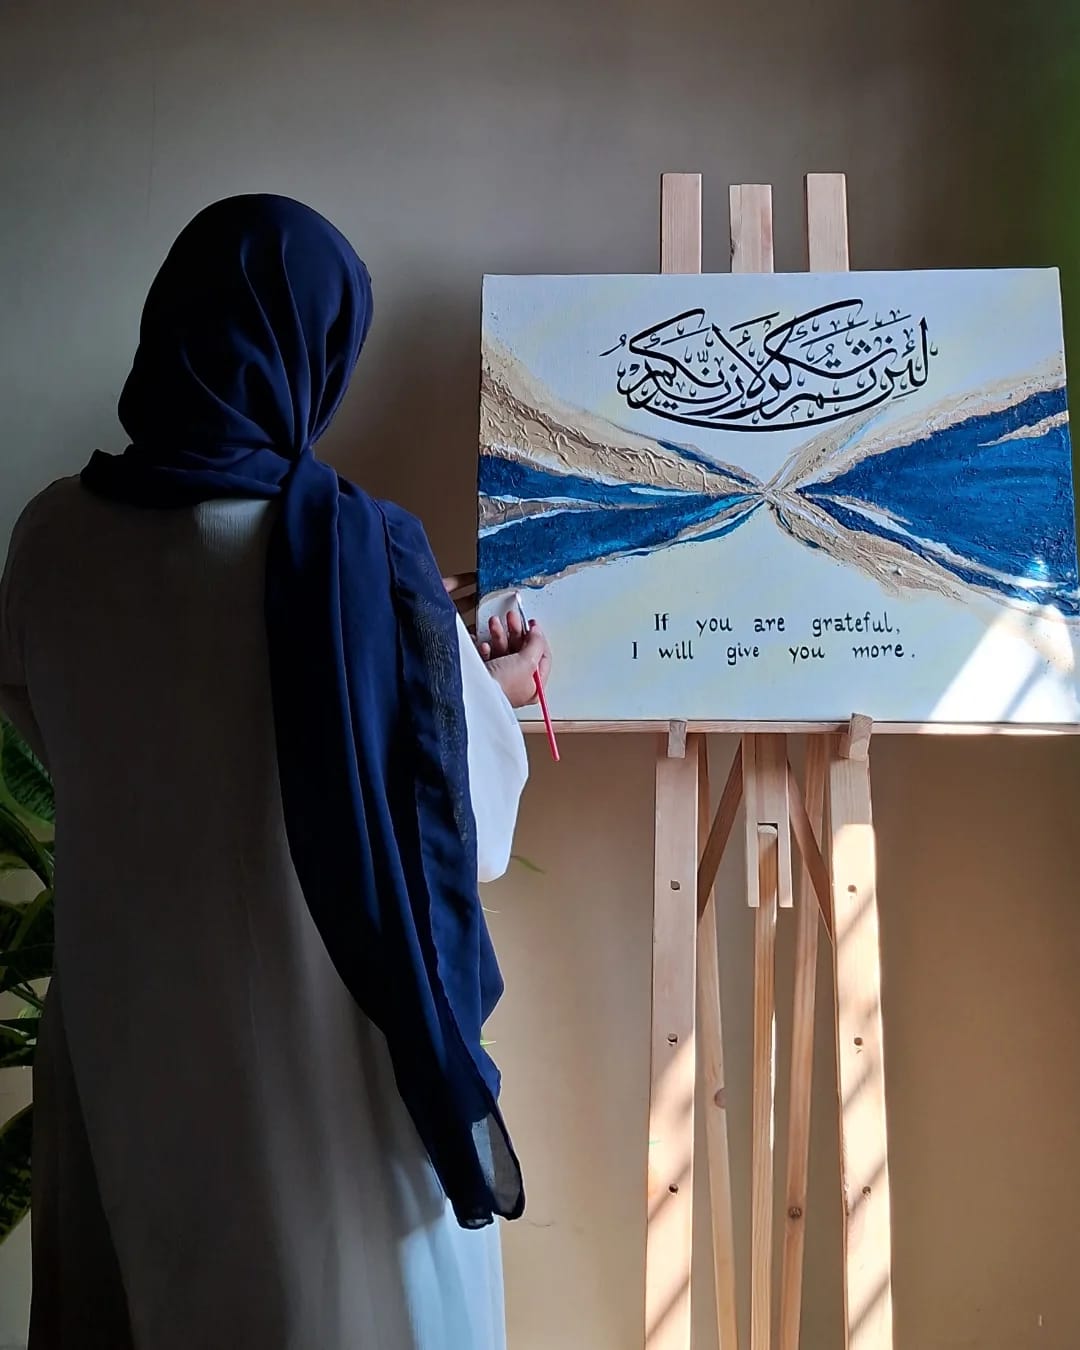 لَئِن شَكَرْتُمْ لَأَزِيدَنَّكُمْ
If you are grateful,
I will give you more.